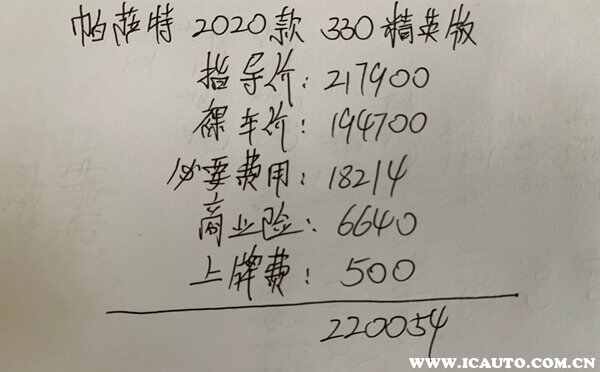 帕萨特 2020款 330精英版
指导价: 217900
裸车价: 194700
必要费用: 18214
商业险: 6640
上牌费: 500
220054
WWW.ICAUTO.COM.CN